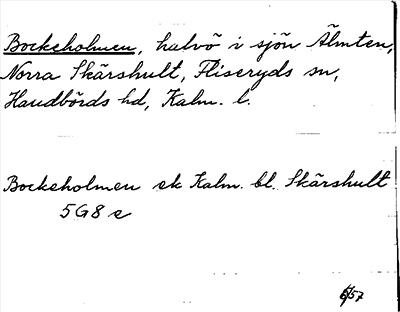 Bockeholmen, halvö i sjön Älmten,
Norra Skärshult, Fliseryds sn,
Handbörds hd, Kalm. l.
Bockeholmen ek Kalm. bl. Skärshult
5G8e